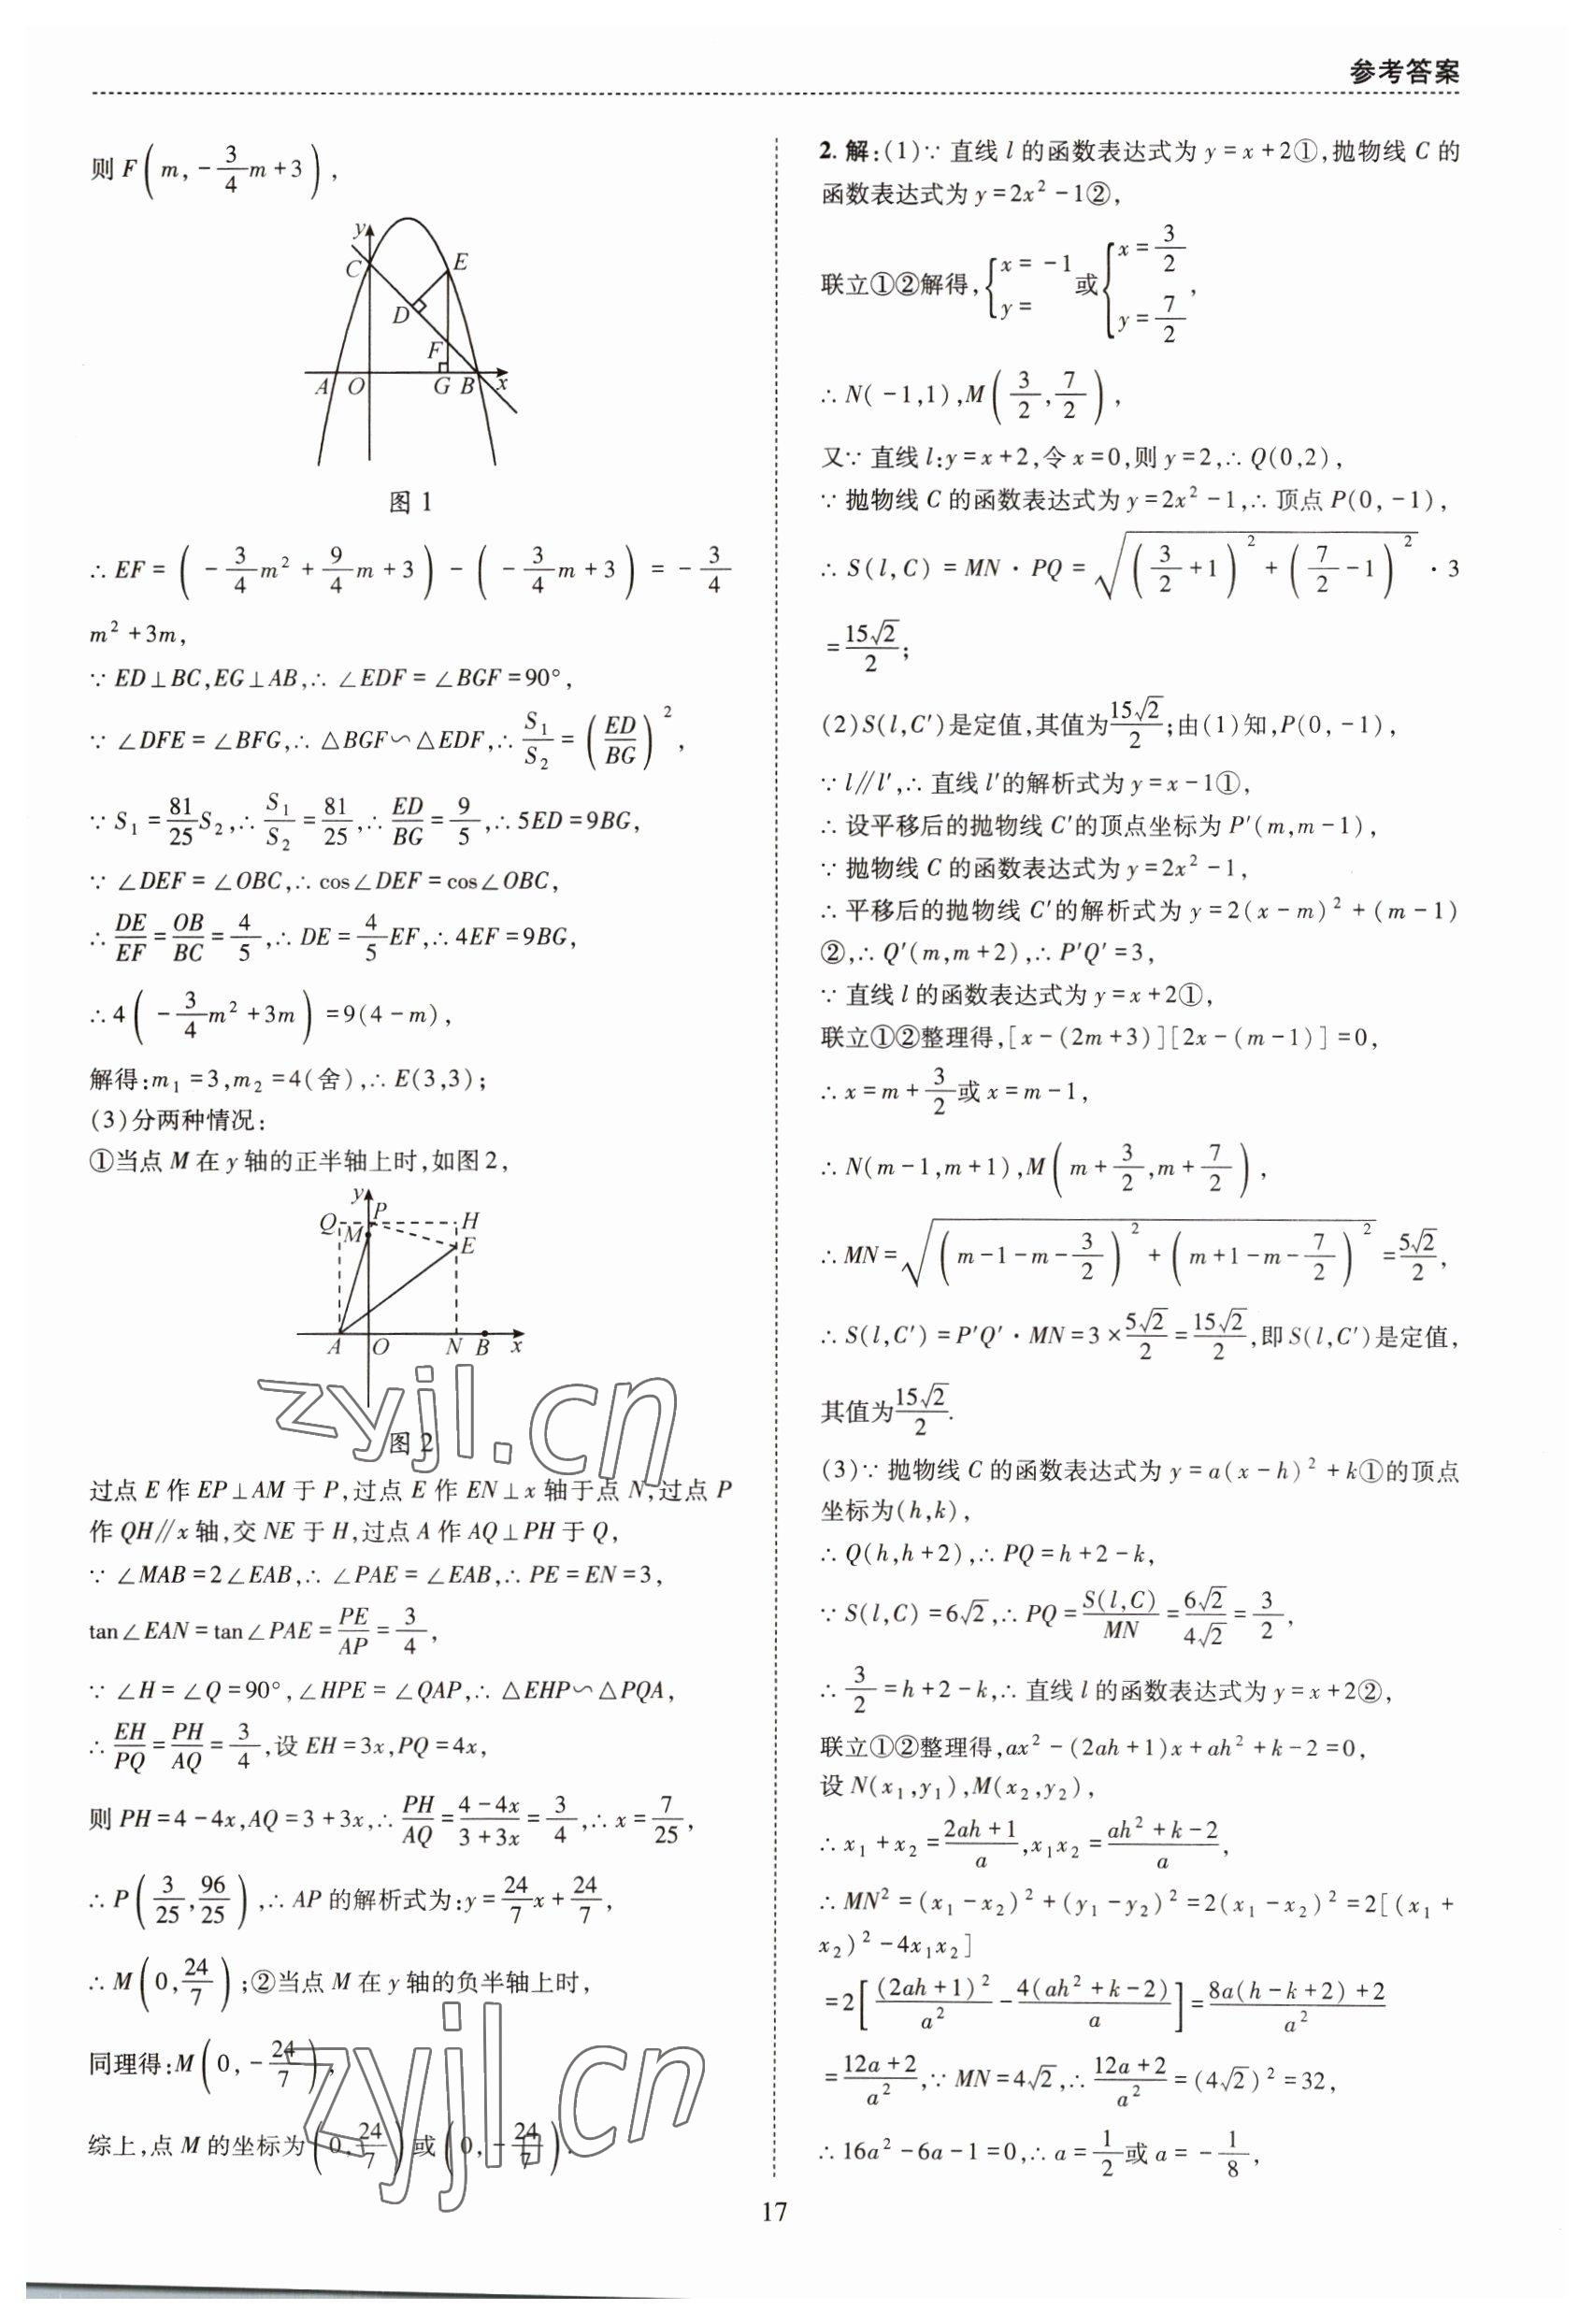 参考答案
则 F(m, -3/4 m+3),
y
C
E
D
F
A
O
G
B
x
图 1
∴ EF = (-3/4 m² + 9/4 m + 3) - (-3/4 m + 3) = -3/4
m² + 3m,
∵ ED⊥BC,EG⊥AB,∴ ∠EDF = ∠BGF = 90°,
∵ ∠DFE = ∠BFG,∴ △BGF∽△EDF,∴ S₁/S₂ = (ED/BG)²,
∵ S₁ = 81/25 S₂,∴ S₁/S₂ = 81/25,∴ ED/BG = 9/5,∴ 5ED = 9BG,
∵ ∠DEF = ∠OBC,∴ cos∠DEF = cos∠OBC,
∴ DE/EF = OB/BC = 4/5,∴ DE = 4/5 EF,∴ 4EF = 9BG,
∴ 4(-3/4 m² + 3m) = 9(4 - m),
解得:m₁ = 3,m₂ = 4(舍),∴ E(3,3);
(3)分两种情况:
①当点 M 在 y 轴的正半轴上时,如图 2,
y
Q
P
H
M
E
A
O
N
B
x
zyjl.cn
图 2
过点 E 作 EP⊥AM 于 P,过点 E 作 EN⊥x 轴于点 N,过点 P
作 QH∥x 轴,交 NE 于 H,过点 A 作 AQ⊥PH 于 Q,
∵ ∠MAB = 2∠EAB,∴ ∠PAE = ∠EAB,∴ PE = EN = 3,
tan∠EAN = tan∠PAE = PE/AP = 3/4,
∵ ∠H = ∠Q = 90°,∠HPE = ∠QAP,∴ △EHP∽△PQA,
∴ EH/PQ = PH/AQ = 3/4,设 EH = 3x,PQ = 4x,
则 PH = 4 - 4x,AQ = 3 + 3x,∴ PH/AQ = (4 - 4x)/(3 + 3x) = 3/4,∴ x = 7/25,
∴ P(3/25, 96/25),∴ AP 的解析式为:y = 24/7 x + 24/7,
∴ M(0, 24/7);②当点 M 在 y 轴的负半轴上时,
同理得:M(0, -24/7),
综上,点 M 的坐标为(0, 24/7)或(0, -24/7).
zyjl.cn
2. 解:(1)∵ 直线 l 的函数表达式为 y = x + 2①,抛物线 C 的
函数表达式为 y = 2x² - 1②,
联立①②解得,{x = -1 y = 或{x = 3/2 y = 7/2,
∴ N(-1,1),M(3/2, 7/2),
又∵ 直线 l:y = x + 2,令 x = 0,则 y = 2,∴ Q(0,2),
∵ 抛物线 C 的函数表达式为 y = 2x² - 1,∴ 顶点 P(0, -1),
∴ S(l,C) = MN · PQ = √((3/2 + 1)² + (7/2 - 1)²) · 3
= 15√2/2;
(2)S(l,C′)是定值,其值为15√2/2;由(1)知,P(0, -1),
∵ l∥l′,∴ 直线 l′的解析式为 y = x - 1①,
∴ 设平移后的抛物线 C′的顶点坐标为 P′(m,m - 1),
∵ 抛物线 C 的函数表达式为 y = 2x² - 1,
∴ 平移后的抛物线 C′的解析式为 y = 2(x - m)² + (m - 1)
②,∴ Q′(m,m + 2),∴ P′Q′ = 3,
∵ 直线 l 的函数表达式为 y = x + 2①,
联立①②整理得,[x - (2m + 3)][2x - (m - 1)] = 0,
∴ x = m + 3/2 或 x = m - 1,
∴ N(m - 1,m + 1),M(m + 3/2, m + 7/2),
∴ MN = √((m - 1 - m - 3/2)² + (m + 1 - m - 7/2)²) = 5√2/2,
∴ S(l,C′) = P′Q′ · MN = 3 × 5√2/2 = 15√2/2,即 S(l,C′)是定值,
其值为15√2/2.
(3)∵ 抛物线 C 的函数表达式为 y = a(x - h)² + k①的顶点
坐标为(h,k),
∴ Q(h,h + 2),∴ PQ = h + 2 - k,
∵ S(l,C) = 6√2,∴ PQ = S(l,C)/MN = 6√2/4√2 = 3/2,
∴ 3/2 = h + 2 - k,∴ 直线 l 的函数表达式为 y = x + 2②,
联立①②整理得,ax² - (2ah + 1)x + ah² + k - 2 = 0,
设 N(x₁,y₁),M(x₂,y₂),
∴ x₁ + x₂ = (2ah + 1)/a,x₁x₂ = (ah² + k - 2)/a,
∴ MN² = (x₁ - x₂)² + (y₁ - y₂)² = 2(x₁ - x₂)² = 2[(x₁ +
x₂)² - 4x₁x₂]
= 2[(2ah + 1)²/a² - 4(ah² + k - 2)/a] = (8a(h - k + 2) + 2)/a²
= (12a + 2)/a²,∵ MN = 4√2,∴ (12a + 2)/a² = (4√2)² = 32,
∴ 16a² - 6a - 1 = 0,∴ a = 1/2 或 a = -1/8,
17